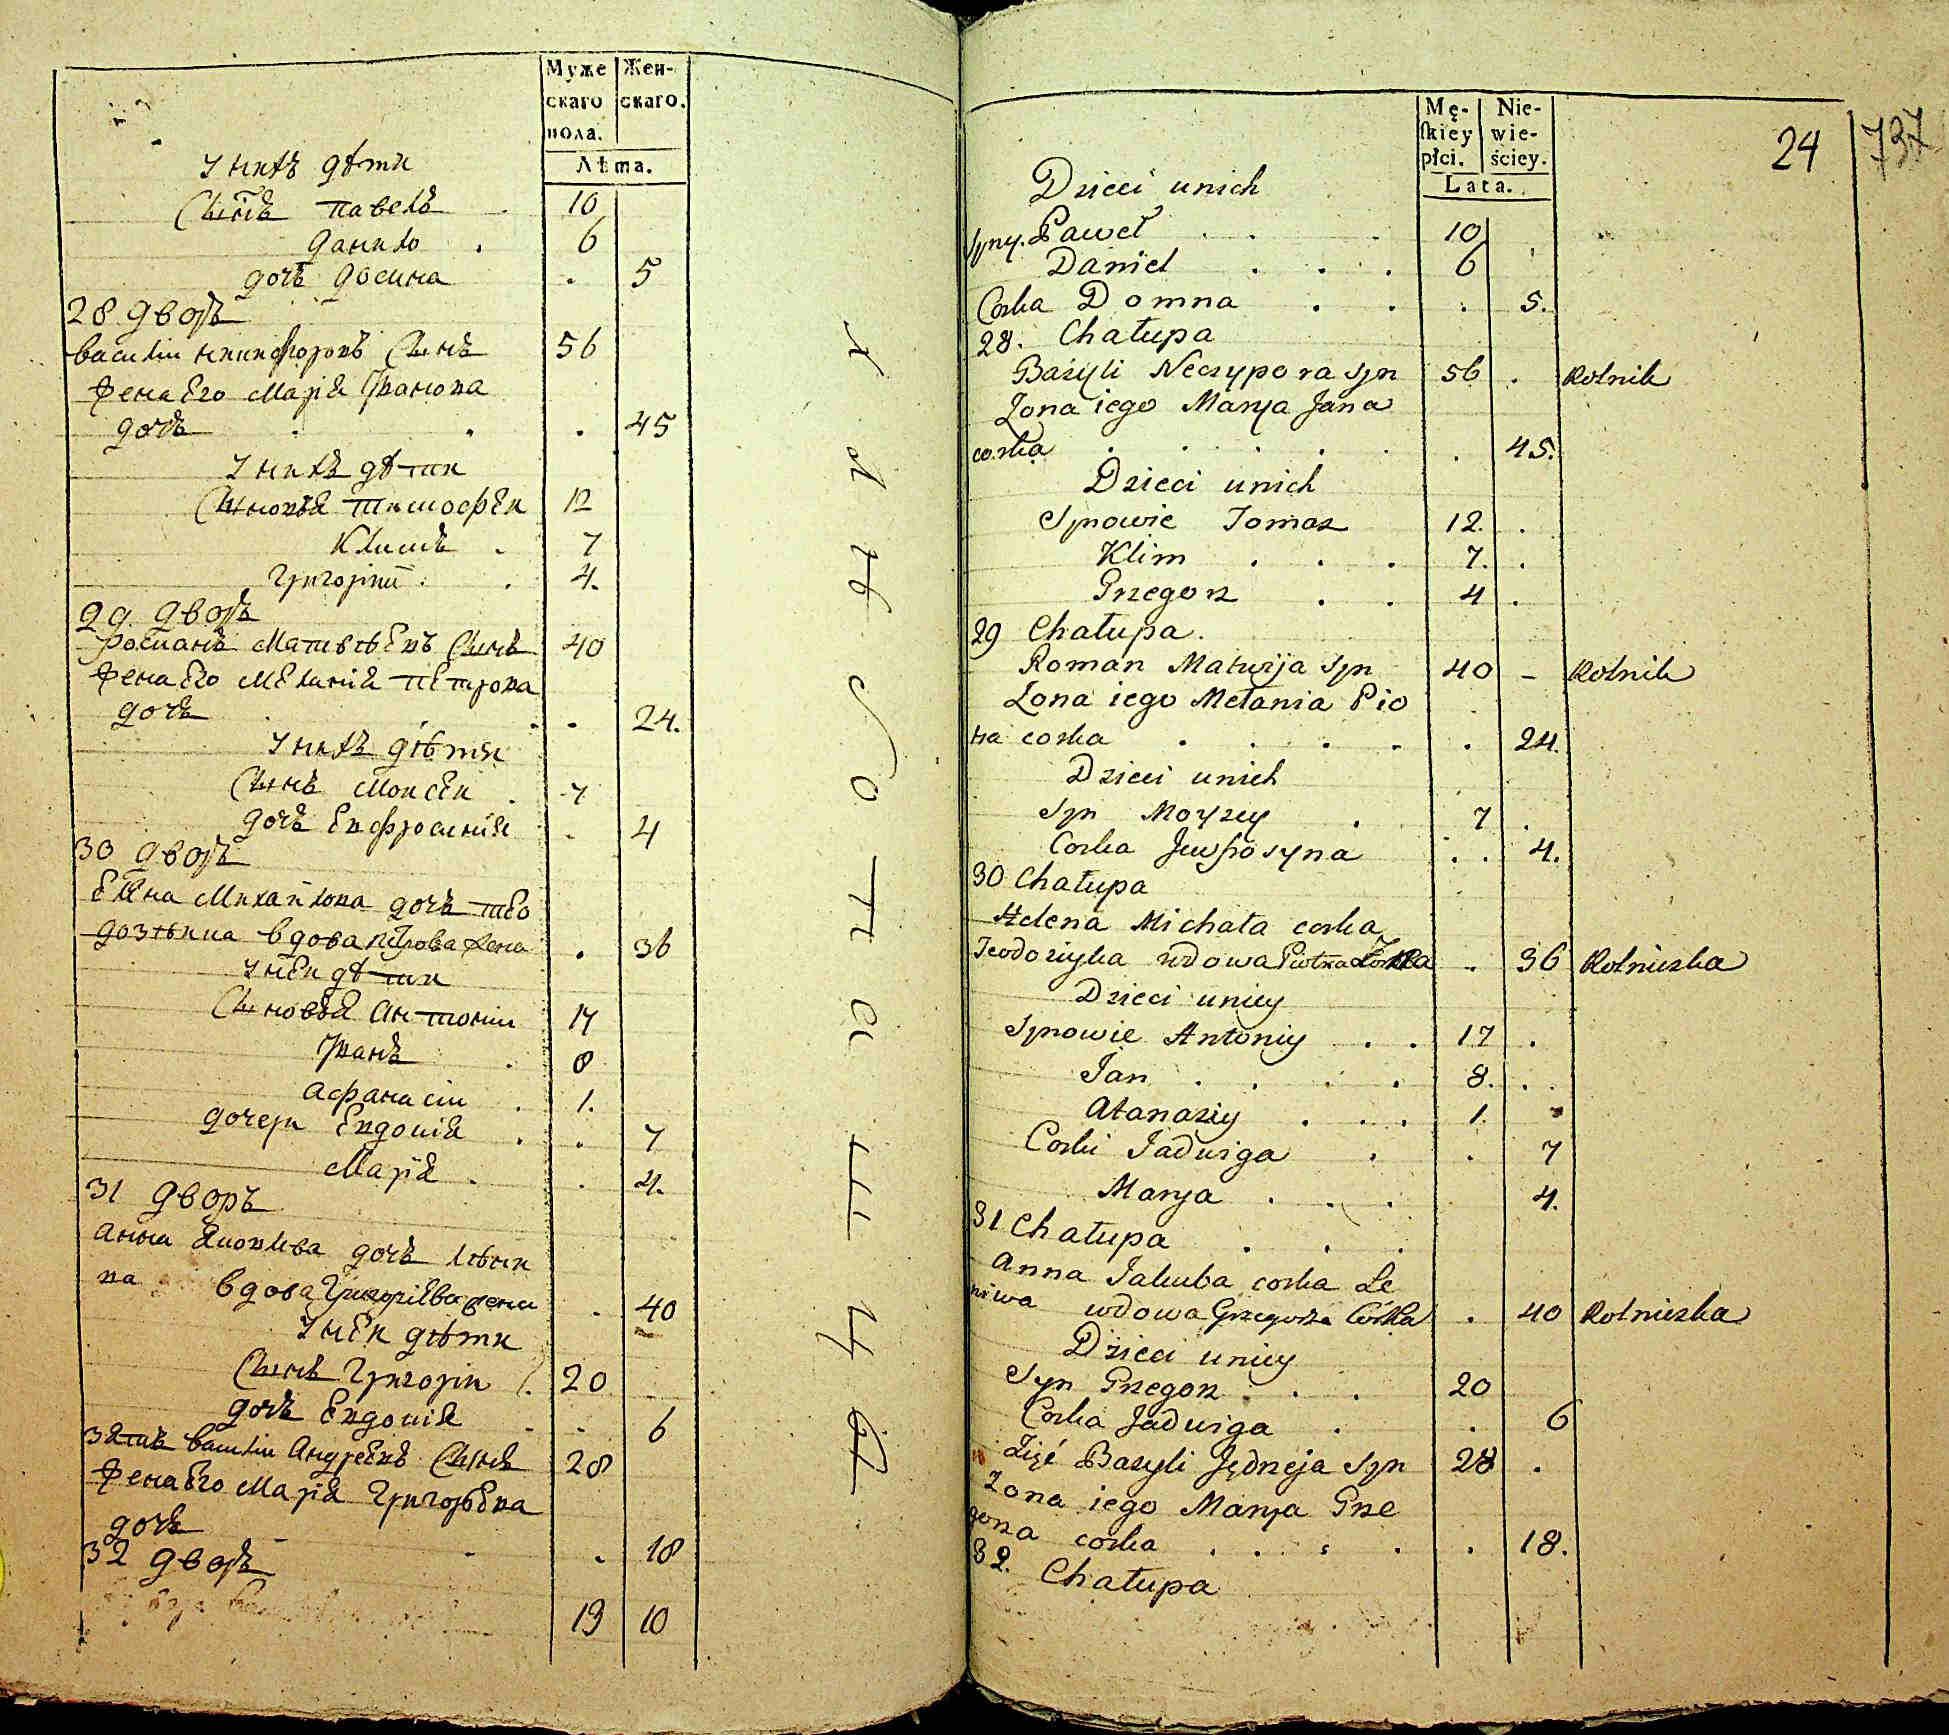 Муже Жен-
скаго скаго.
пола.
Лѣта.
У нихъ дѣти
Сынъ Павелъ . 10
Данило . 6
дочь Домна . 5
28 дворъ
Василiи Никифоровъ Сынъ 56
Жена Его Марiя Иванова
дочь . . . 45
У нихъ дѣти
Сыновья Тимофей 12
Климъ . 7
Григорiй . . 4.
29 дворъ
Романъ Матвѣевъ Сынъ 40
Жена Его Меланiя Петрова
дочь . . . . 24.
У нихъ дѣти
Сынъ Моисей . 7
дочь Евфросинiя . 4
30 дворъ
Елена Михайлова дочь Тео
дозѣиха вдова Петрова Жена . 36
У ней дѣти
Сыновья Антонiи 17
Иванъ . 8
Афанасiи . 1.
дочери Евдокiя . . 7
Марiя . . 4.
31 дворъ
Анна Яковлева дочь Лѣни
ва вдова Григорiева жена . 40
У ней дѣти
Сынъ Григорiи . 20
дочь Евдокiя . . 6
Зять Василiи Андреевъ Сынъ 28
Жена Его Марiя Григорьева
дочь . . 18
32 дворъ
19 10
хлѣбопашцы
Mę- Nie-
skiey wie-
płci. ściey.
Lata.
24
737
Dzieci unich
Syny. Paweł . . . 10 .
Daniel . . . 6
Corka Domna . . . 5.
28. Chałupa
Bazyli Neczypora Syn 56 . Rolnik
Zona iego Marya Jana
corka . . . . . . 45.
Dzieci unich
Synowie Tomasz 12. .
Klim . . . 7. .
Grzegorz . . 4 .
29 Chałupa.
Roman Matwija Syn 40 - Rolnik
Zona iego Mełania Pio
tra corka . . . . . 24.
Dzieci unich
Syn Moyzey . 7 .
Corka Jewfrosyna . . 4.
30 Chałupa
Helena Michała corka
Teodozicha wdowa Piotra Zona . 36 Rolniczka
Dzieci uniey
Synowie Antoniy . . 17 .
Jan . . . . 8. .
Atanaziy . . . 1.
Corki Jadwiga . . 7
Marya . . . 4.
31 Chałupa . . .
Anna Jakuba corka Le
niwa wdowa Grzegorza Corka . 40 Rolniczka
Dzieci uniey
Syn Grzegorz . . . 20
Corka Jadwiga . . 6
Zięć Bazyli Jędrzeja Syn 28 .
Zona iego Marya Grze
gorza corka . . . . . 18.
32. Chałupa